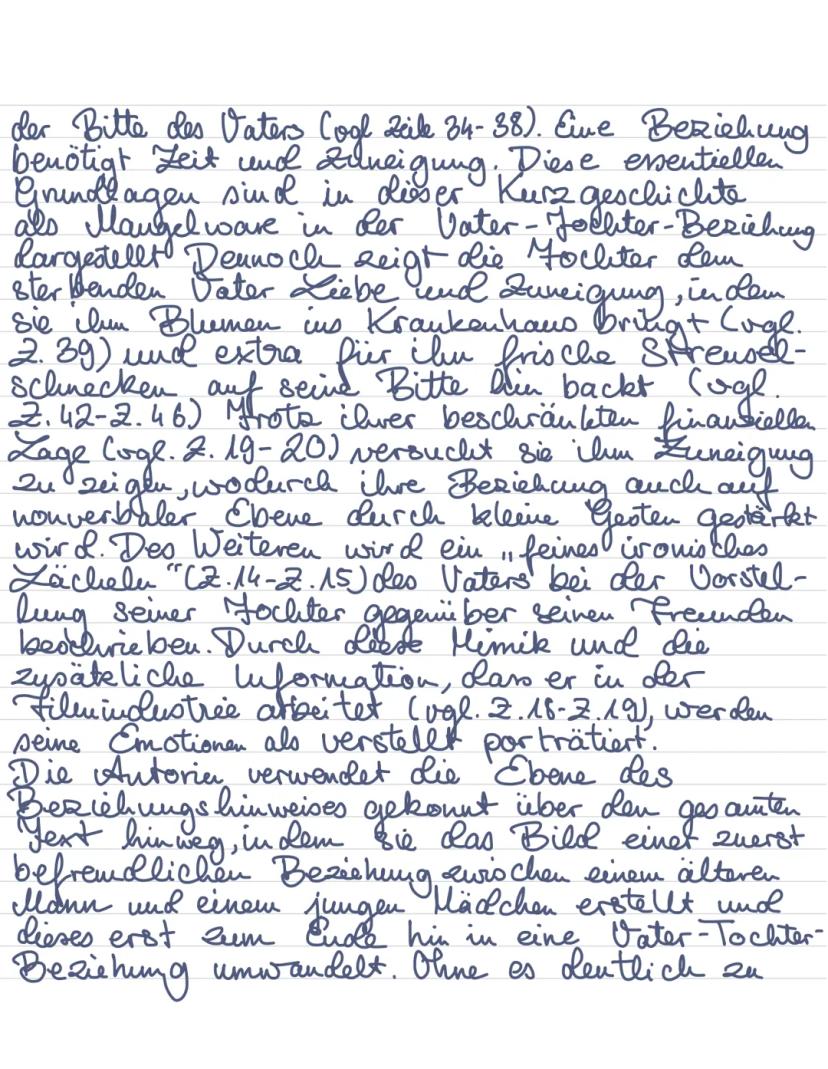 der Bitte des Vaters (vgl Zeile 34-38). Eine Beziehung
benötigt Zeit und Zuneigung. Diese essentiellen
Grundlagen sind in dieser Kurzgeschichte
als Mangelware in der Vater-Tochter-Beziehung
dargestellt Dennoch zeigt die Tochter dem
sterbenden Vater Liebe und Zuneigung, in dem
sie ihm Blumen ins Krankenhaus bringt (vgl.
Z. 39) und extra für ihn frische Streusel-
schnecken auf seine Bitte hin backt (vgl.
Z. 42-Z. 46) Trotz ihrer beschränkten finanziellen
Lage (vgl. Z. 19-20) versucht sie ihm Zuneigung
zu zeigen, wodurch ihre Beziehung auch auf
nonverbaler Ebene durch kleine Gesten gestärkt
wird. Des Weiteren wird ein „feines ironisches
Lächeln" (Z. 14-Z. 15) des Vaters bei der Vorstel-
lung seiner Tochter gegenüber seinen Freunden
beschrieben. Durch diese Mimik und die
zusätzliche Information, dass er in der
Filmindustrie arbeitet (vgl. Z. 18-Z. 19), werden
seine Emotionen als verstellt porträtiert.
Die Autorin verwendet die Ebene des
Beziehungshinweises gekonnt über den gesamten
Text hinweg, in dem sie das Bild einer zuerst
befremdlichen Beziehung zwischen einem älteren
Mann und einem jungen Mädchen erstellt und
dieses erst zum Ende hin in eine Vater-Tochter-
Beziehung umwandelt. Ohne es deutlich zu